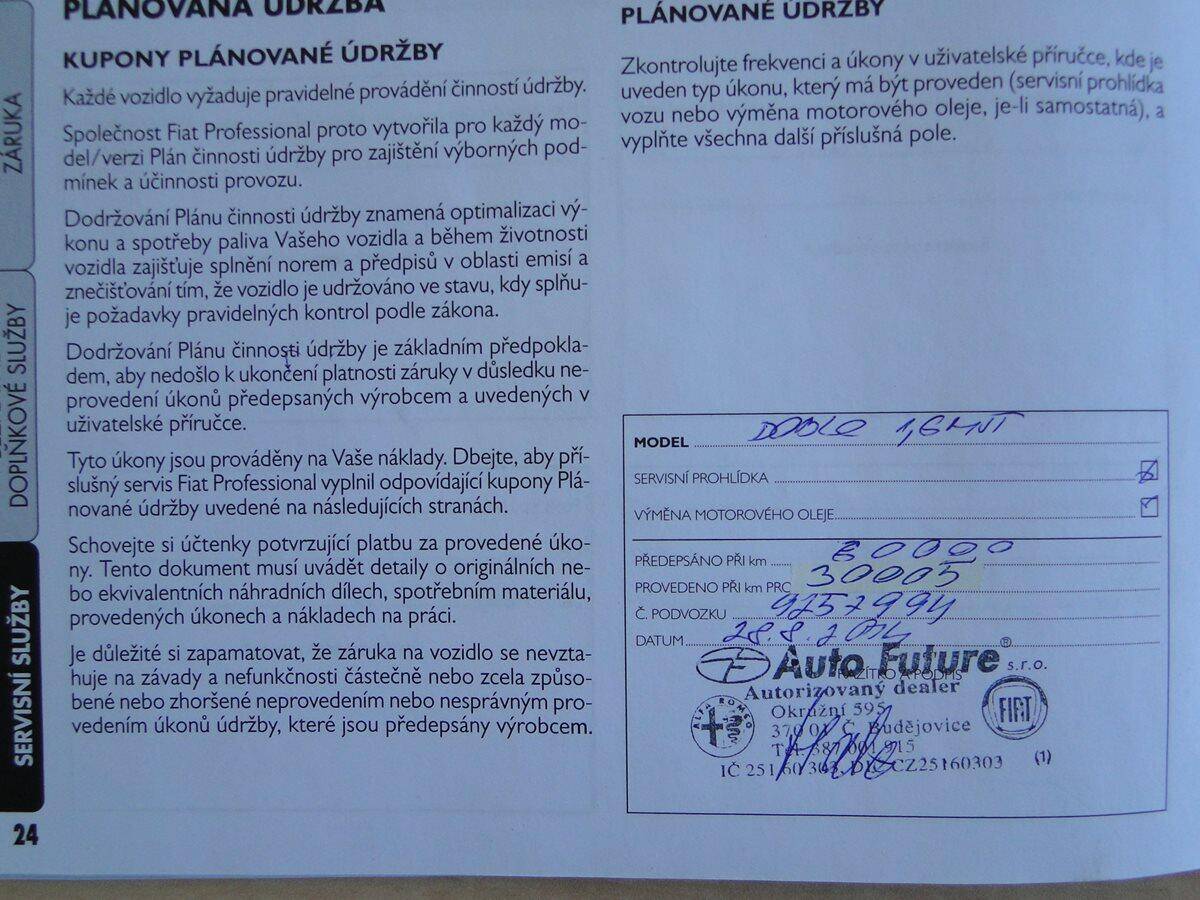 PLÁNOVANÁ ÚDRŽBA
KUPONY PLÁNOVANÉ ÚDRŽBY
Každé vozidlo vyžaduje pravidelné provádění činností údržby.
Společnost Fiat Professional proto vytvořila pro každý mo-
del/verzi Plán činnosti údržby pro zajištění výborných pod-
mínek a účinnosti provozu.
Dodržování Plánu činnosti údržby znamená optimalizaci vý-
konu a spotřeby paliva Vašeho vozidla a během životnosti
vozidla zajišťuje splnění norem a předpisů v oblasti emisí a
znečišťování tím, že vozidlo je udržováno ve stavu, kdy splňu-
je požadavky pravidelných kontrol podle zákona.
Dodržování Plánu činnosti údržby je základním předpokla-
dem, aby nedošlo k ukončení platnosti záruky v důsledku ne-
provedení úkonů předepsaných výrobcem a uvedených v
uživatelské příručce.
Tyto úkony jsou prováděny na Vaše náklady. Dbejte, aby pří-
slušný servis Fiat Professional vyplnil odpovídající kupony Plá-
nované údržby uvedené na následujících stranách.
Schovejte si účtenky potvrzující platbu za provedené úko-
ny. Tento dokument musí uvádět detaily o originálních ne-
bo ekvivalentních náhradních dílech, spotřebním materiálu,
provedených úkonech a nákladech na práci.
Je důležité si zapamatovat, že záruka na vozidlo se nevzta-
huje na závady a nefunkčnosti částečně nebo zcela způso-
bené nebo zhoršené neprovedením nebo nesprávným pro-
vedením úkonů údržby, které jsou předepsány výrobcem.
PLÁNOVANÉ ÚDRŽBY
Zkontrolujte frekvenci a úkony v uživatelské příručce, kde je
uveden typ úkonu, který má být proveden (servisní prohlídka
vozu nebo výměna motorového oleje, je-li samostatná), a
vyplňte všechna další příslušná pole.
MODEL DOBLO 1,6 MJT
SERVISNÍ PROHLÍDKA
VÝMĚNA MOTOROVÉHO OLEJE
PŘEDEPSÁNO PŘI km
PROVEDENO PŘI km PRO 30005
Č. PODVOZKU 9257994
DATUM 28.8.2014
Auto Future® s.r.o.
RAZÍTKO A PODPIS
Autorizovaný dealer
Okružní 595
370 01 Č. Budějovice
Tel. 387 001 915
ALFA ROMEO
FIAT
IČ 251 60 303, DIČ CZ25160303
(1)
ZÁRUKA
DOPLNKOVÉ SLUŽBY
SERVISNÍ SLUŽBY
24